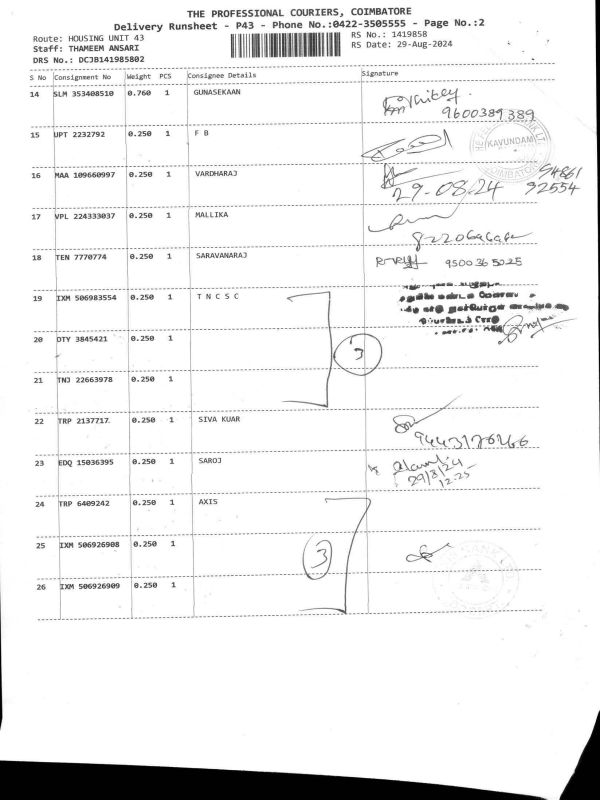 THE PROFESSIONAL COURIERS, COIMBATORE
Delivery Runsheet - P43 - Phone No.:0422-3505555 - Page No.:2
Route: HOUSING UNIT 43 RS No.: 1419858
Staff: THAMEEM ANSARI RS Date: 29-Aug-2024
DRS No.: DCJB141985802
S No Consignment No Weight PCS Consignee Details Signature
14 SLM 353408510 0.760 1 GUNASEKAAN
9600389389
15 UPT 2232792 0.250 1 F B
KAVUNDAM
16 MAA 109660997 0.250 1 VARDHARAJ 94861
29-08.24 92554
17 VPL 224333037 0.250 1 MALLIKA
18 TEN 7770774 0.250 1 SARAVANARAJ 9500365025
19 IXM 506983554 0.250 1 T N C S C
20 DTY 3845421 0.250 1
3
21 TNJ 22663978 0.250 1
22 TRP 2137717 0.250 1 SIVA KUAR
23 EDQ 15036395 0.250 1 SAROJ
29/8/24
12.25
24 TRP 6409242 0.250 1 AXIS
25 IXM 506926908 0.250 1
3
26 IXM 506926909 0.250 1